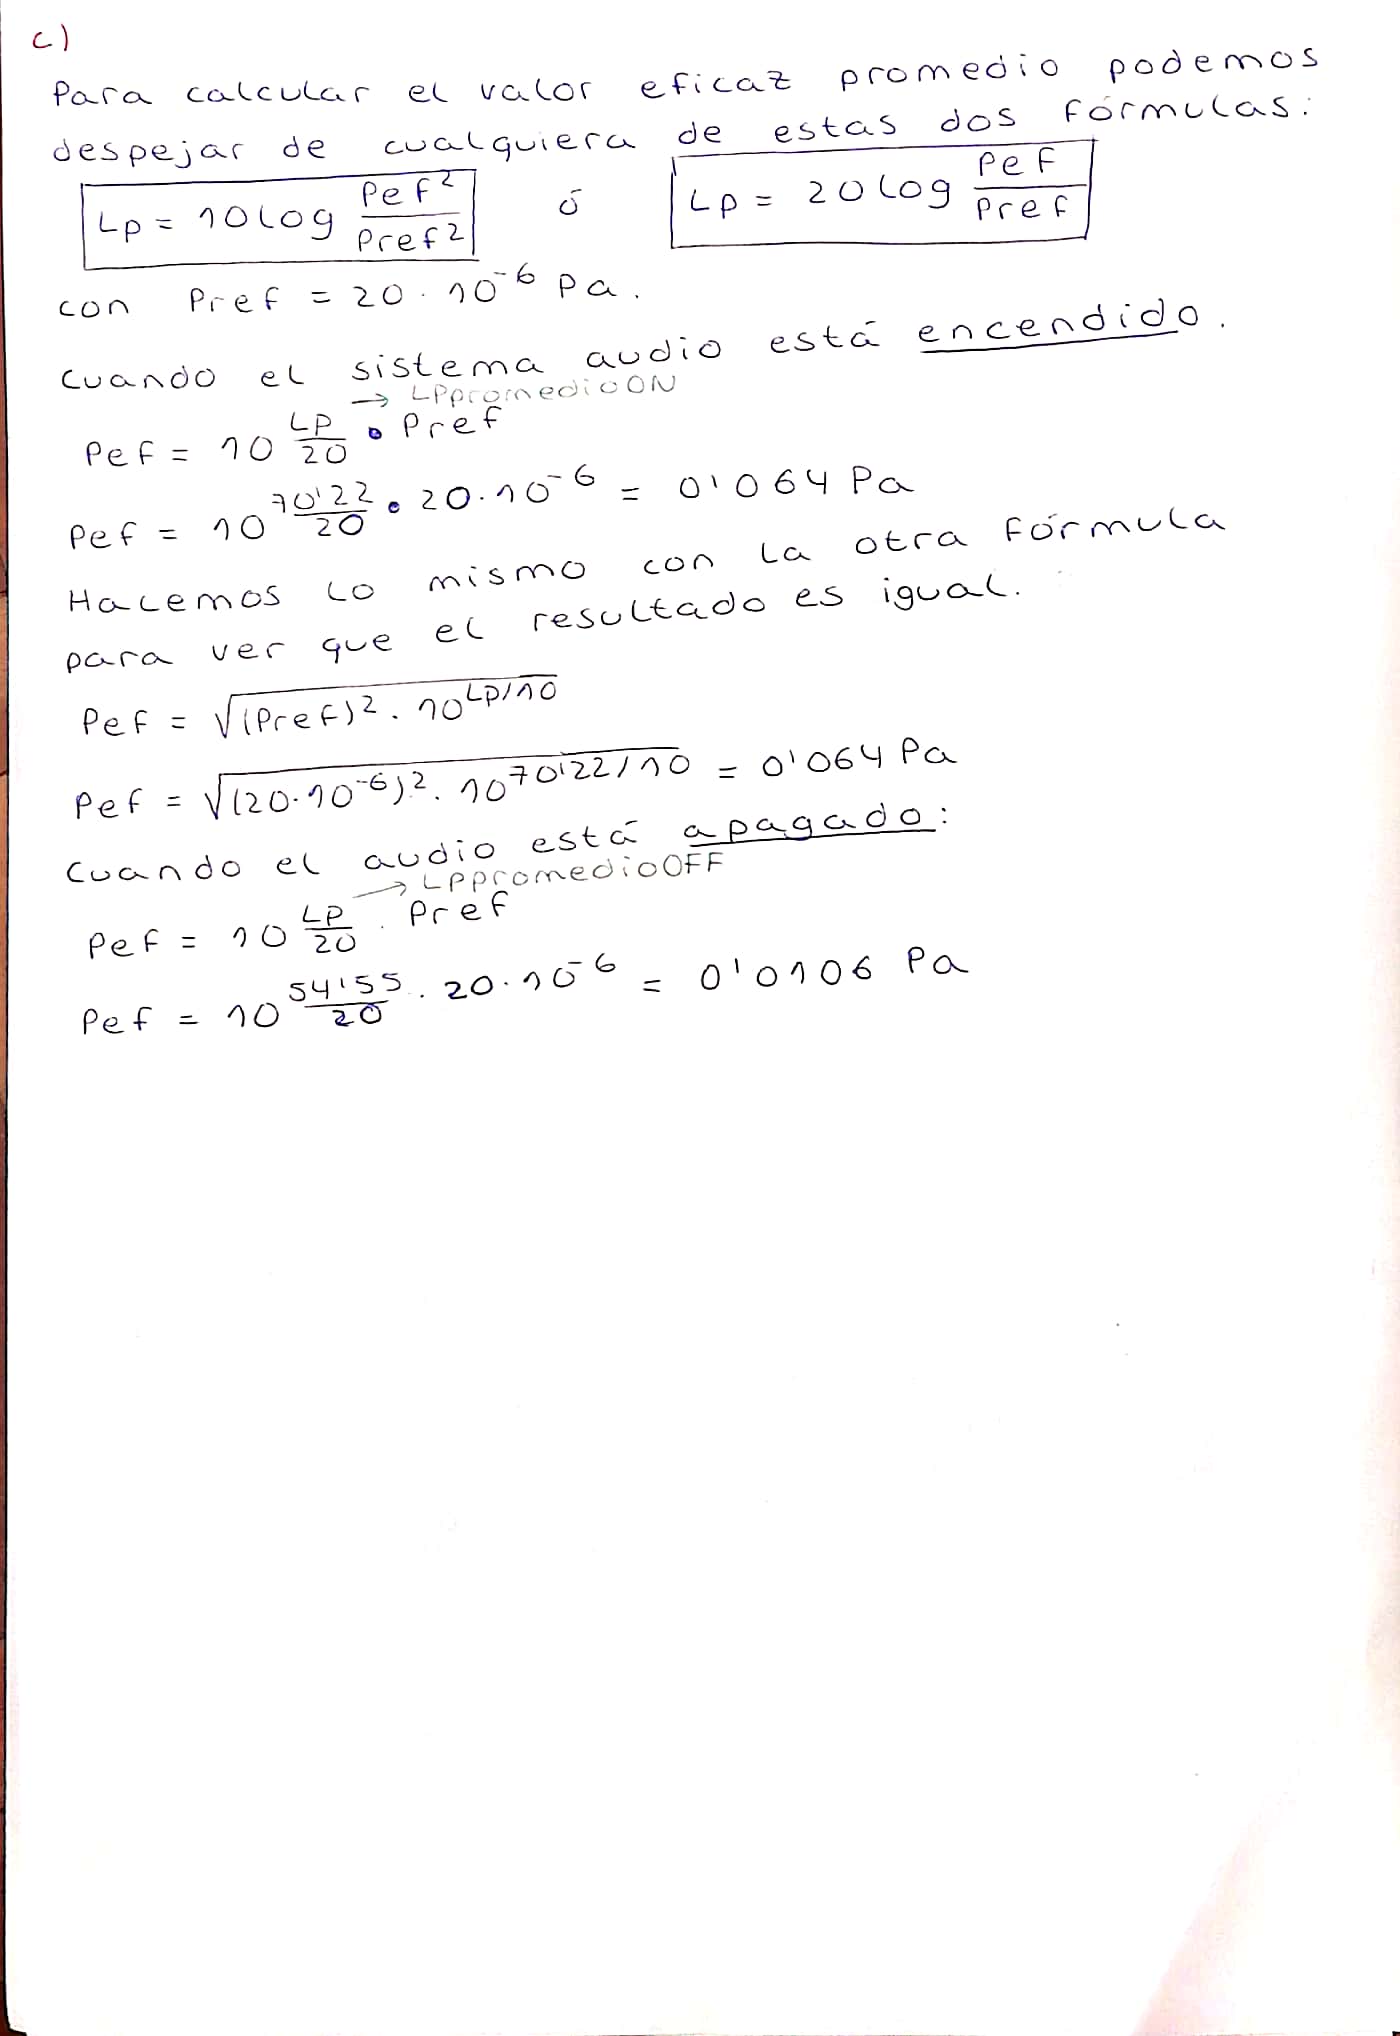 c)
Para calcular el valor eficaz promedio podemos
despejar de cualquiera de estas dos fórmulas:
Lp = 10 log Pef² / Pref² ó Lp = 20 log Pef / Pref
con Pref = 20 · 10⁻⁶ Pa.
Cuando el sistema audio está encendido.
→ LPpromedioON
Pef = 10^(LP/20) · Pref
Pef = 10^(70'22/20) · 20·10⁻⁶ = 0'064 Pa
Hacemos lo mismo con la otra fórmula
para ver que el resultado es igual.
Pef = √((Pref)² · 10^(Lp/10))
Pef = √((20·10⁻⁶)² · 10^(70'22/10)) = 0'064 Pa
Cuando el audio está apagado:
→ LPpromedioOFF
Pef = 10^(LP/20) · Pref
Pef = 10^(54'55/20) · 20·10⁻⁶ = 0'0106 Pa